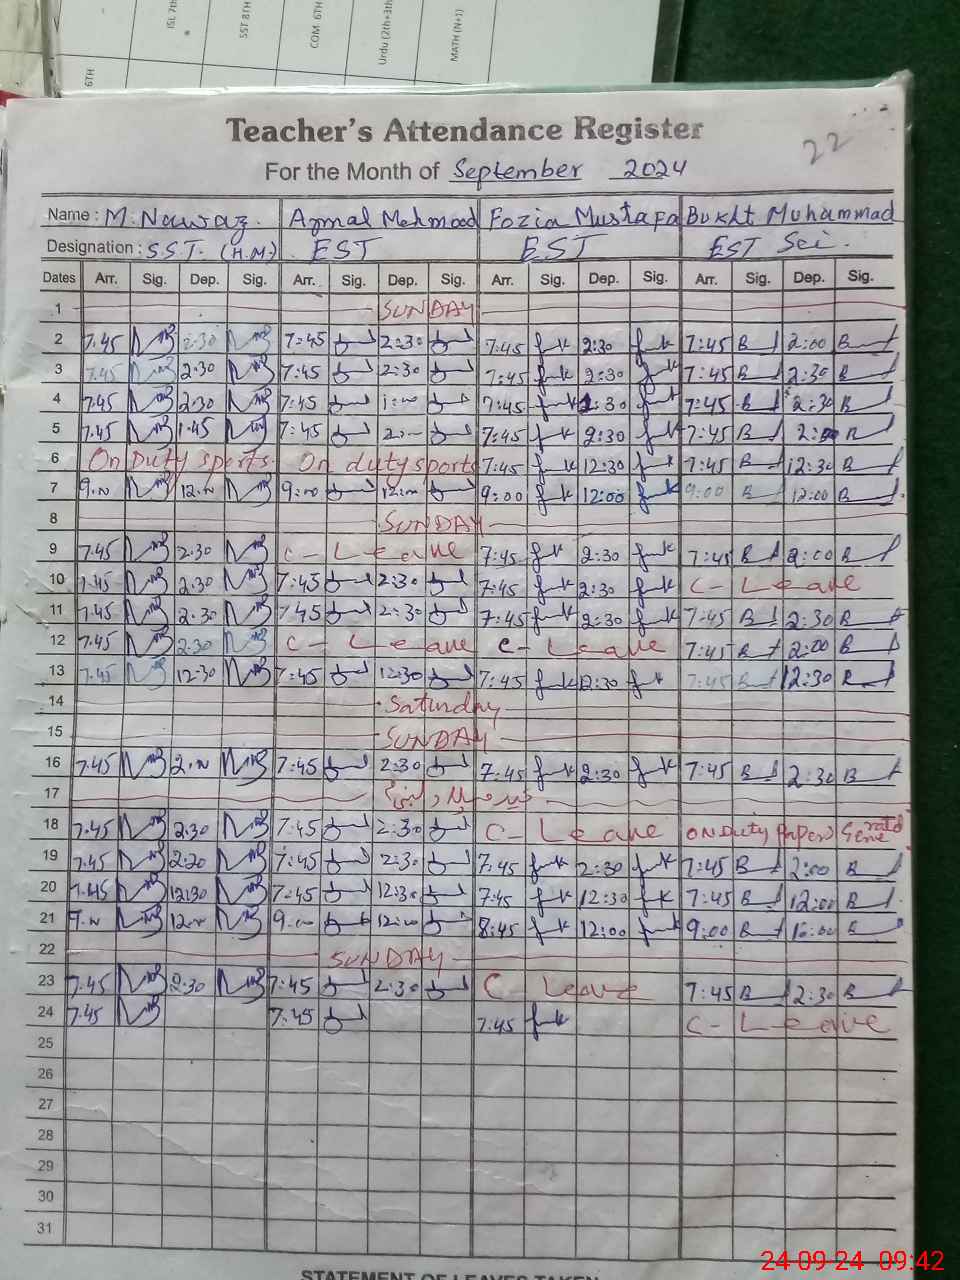 6TH
ISL 7th
SST 8TH
COM. 6TH
Urdu (2th+3th
MATH (N+1)
22
Teacher's Attendance Register
For the Month of September 2024
Name : M. Nawaz. Ajmal Mehmood Fozia Mustafa Bukht Muhammad
Designation : S.S.T. (H.M) EST EST EST Sci.
Dates Arr. Sig. Dep. Sig. Arr. Sig. Dep. Sig. Arr. Sig. Dep. Sig. Arr. Sig. Dep. Sig.
1 SUNDAY
2 7.45 2.30 7:45 2:30 7:45 2:30 7:45 2:00
3 7.45 2.30 7:45 2:30 7:45 2:30 7:45 2:30
4 7.45 2.30 7:45 7:45 2:30 7:45 2:30
5 7.45 1.45 7:45 7:45 2:30 7:45
6 On Duty sports. On duty sports 7:45 12:30 7:45 12:30
7 9:00 12:00 9:00 12:00
8 SUNDAY
9 7.45 2.30 C-Leave 7:45 2:30 7:45 2:00
10 7.45 2.30 7:45 2:30 7:45 2:30 C-Leave
11 7.45 2.30 7:45 2:30 7:45 2:30 7:45 2:30
12 7.45 2.30 C-Leave C-Leave 7:45 2:00
13 7.45 12.30 7:45 12:30 7:45 12:30 7:45 12:30
14 Saturday
15 SUNDAY
16 7.45 7:45 2:30 7:45 2:30 7:45 2:30
17
18 7.45 2.30 7:45 2:30 C-Leave ON Duty Paper
19 7.45 7:45 2:30 7:45 2:30 7:45 2:00
20 7.45 12.30 7:45 12:30 7:45 12:30 7:45 12:00
21 8:45 12:00 9:00
22 SUNDAY
23 7.45 2.30 7:45 2:30 C-Leave 7:45 2:30
24 7.45 7:45 7:45 C-Leave
25
26
27
28
29
30
31
STATEMENT OF LEAVES TAKEN
24-09-24 09:42